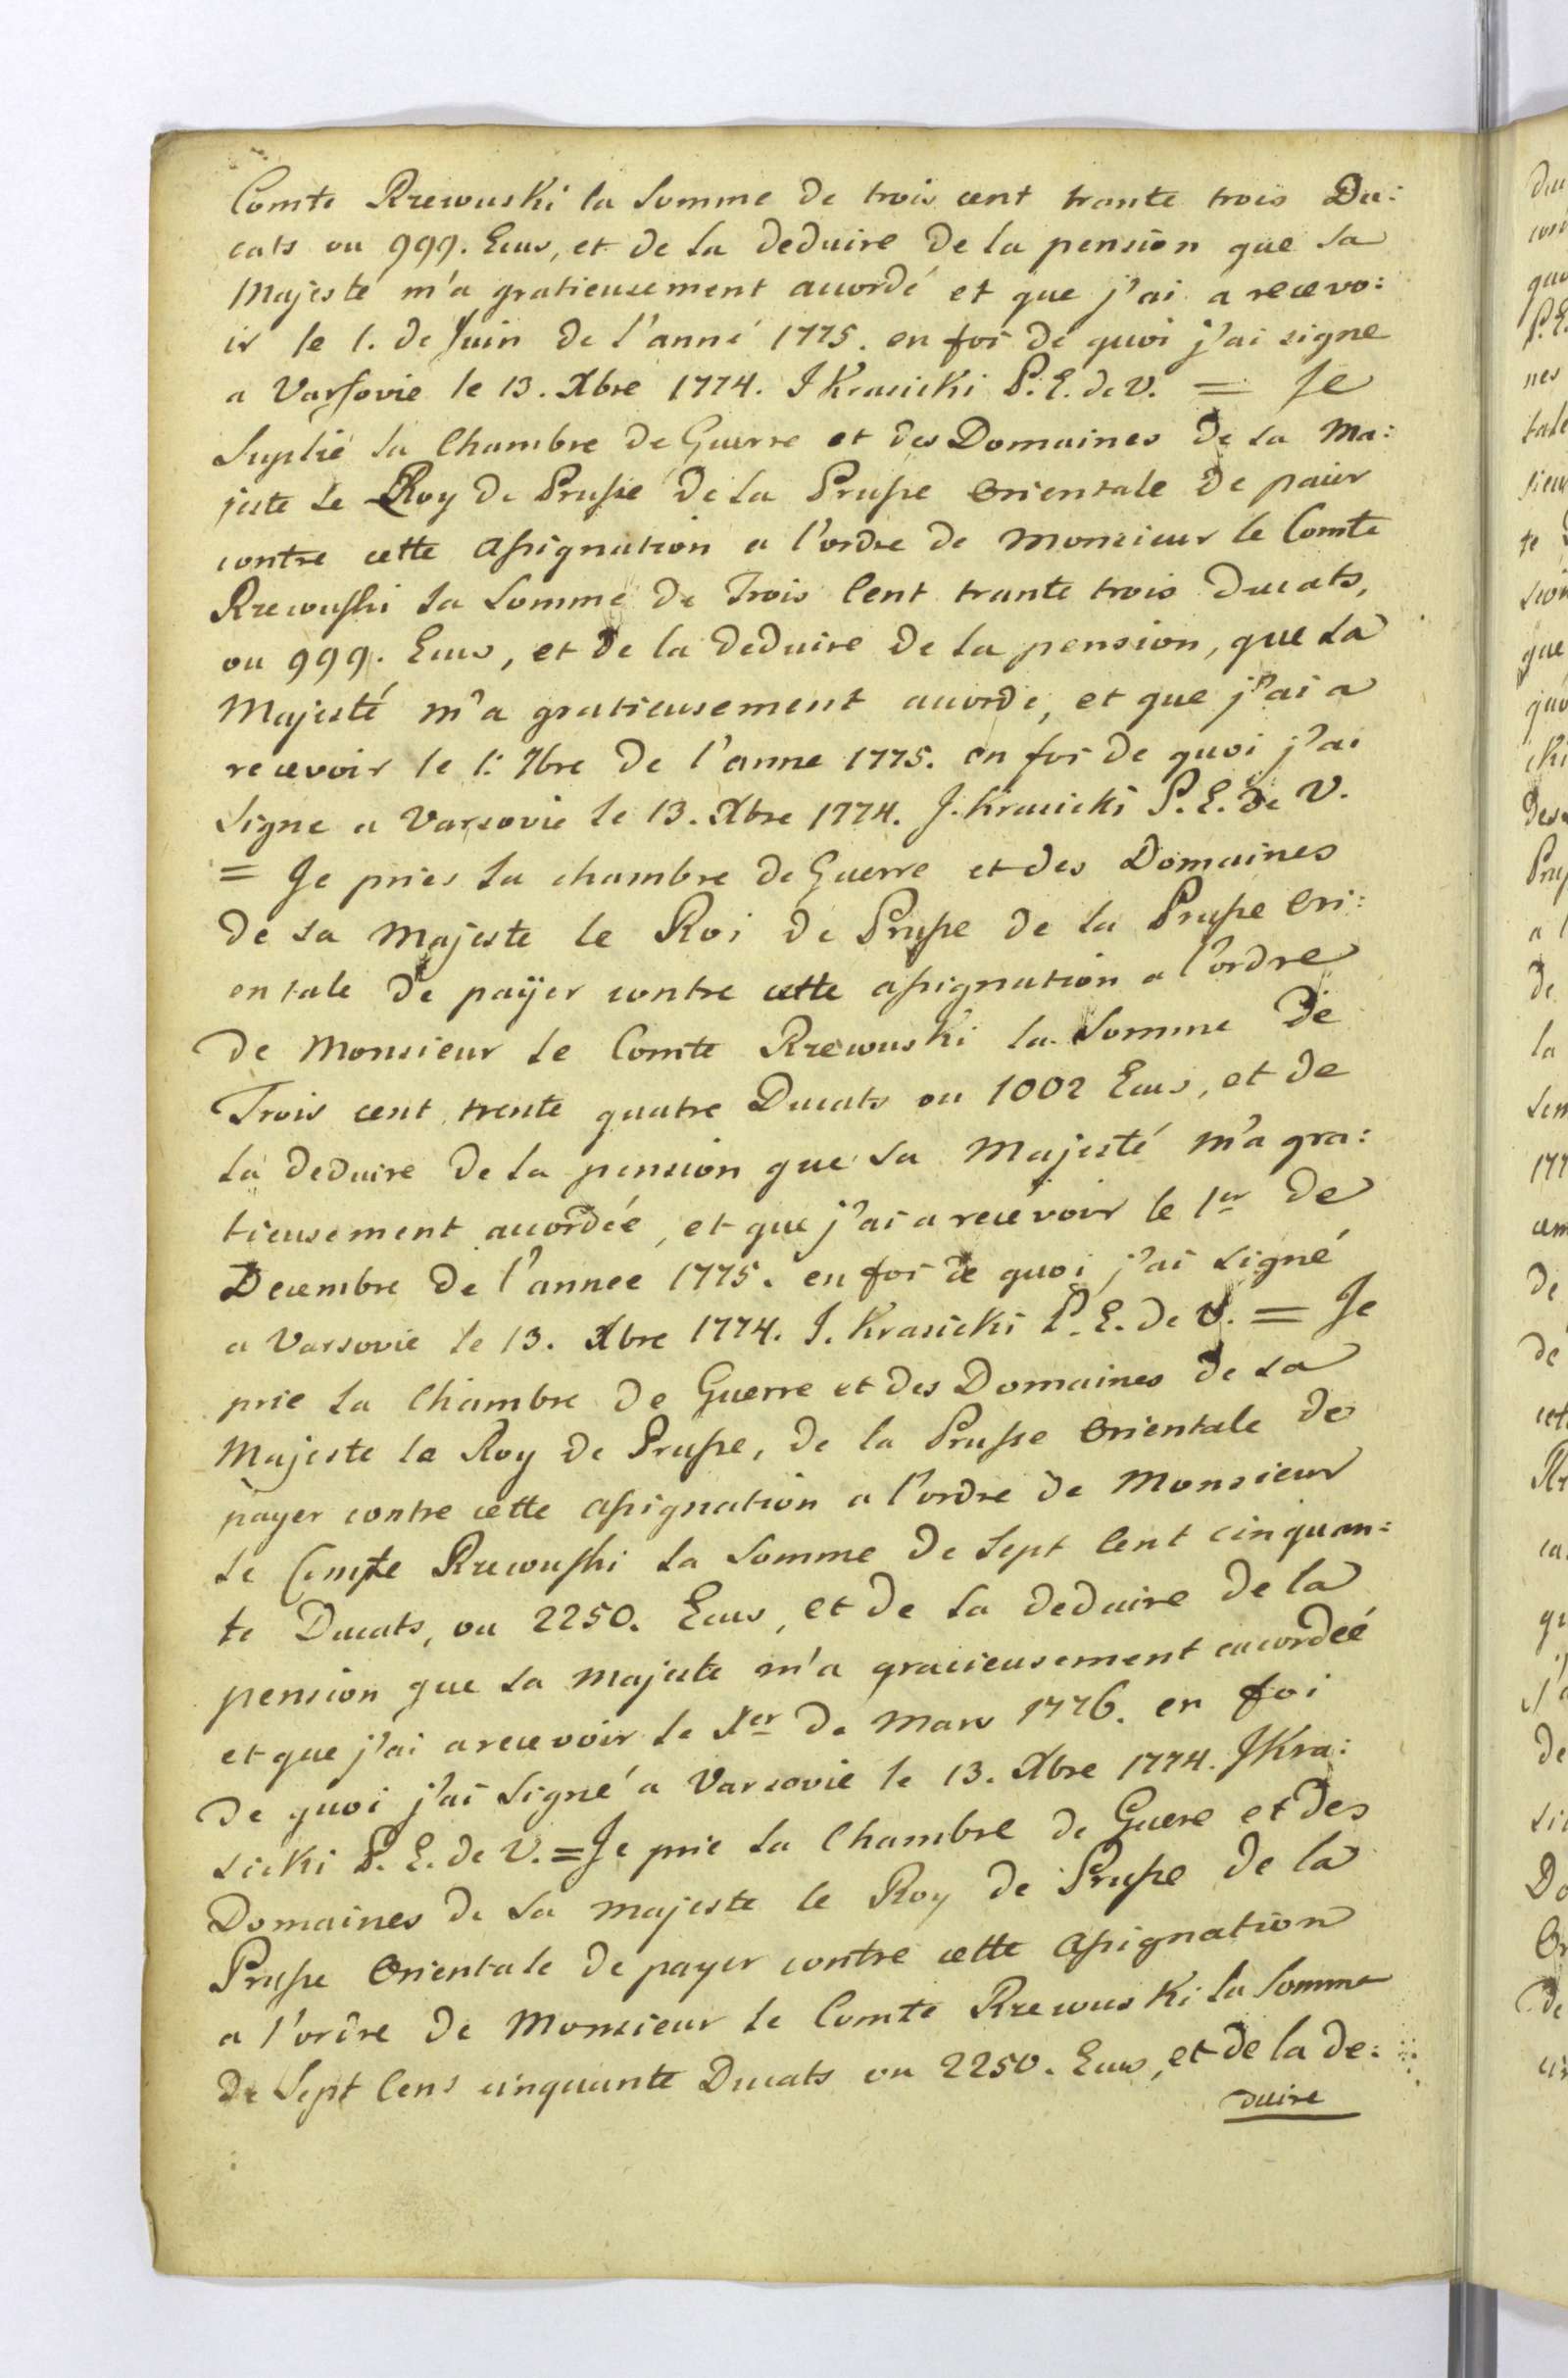 Comte Rzewuski la Somme de trois cent trante trois Du:
cats ou 999. Ecus, et de la deduire de la pension que Sa
Majesté m'a gratieusement accordé et que j'ai a recevo:
ir le 1. de Juin de l'anné 1775. en foi de quoi j'ai signe
a Varsovie le 13. Xbre 1774. I Krasicki P. E. de V. = Je
Suplié la Chambre de Guerre et des Domaines de sa Ma:
jeste le Roy de Prusse de la Prusse Orientale de paier
contre cette assignation a l'ordre de Monsieur le Comte
Rzewuski la Somme de Trois Cent trante trois Ducats,
ou 999. Ecus, et de la deduire de la pension, que Sa
Majesté m'a gratieusement accorde, et que j'ai a
recevoir le 1: 7bre de l'anne 1775. en foi de quoi j'ai
Signe a Varsovie le 13. Xbre 1774. J. Krasicki P. E. de V.
= Je pries la chambre de Guerre et des Domaines
de sa Majeste le Roi de Prusse de la Prusse Ori:
entale de paÿer contre cette assignation a l'ordre
de Monsieur le Comte Rzewuski la Somme de
Trois cent trente quatre Ducats ou 1002 Ecus, et de
la deduire de la pension que Sa Majesté m'a gra:
tieusement accordée, et que j'ai a recevoir le 1er de
Decembre de l'annee 1775. en foi de quoi j'ai signé
a Varsovie le 13. Xbre 1774. I. Krasicki P. E. de V. = Je
prie la Chambre de Guerre et des Domaines de sa
Majeste le Roy de Prusse, de la Prusse Orientale de
payer contre cette assignation a l'ordre de Monsieur
le Compte Rzewuski la Somme de Sept Cent cinquan:
te Ducats, ou 2250. Ecus, et de la deduire de la
pension que Sa Majeste m'a gracieusement accordée
et que j'ai a recevoir le 1er de Mars 1776. en foi
de quoi j'ai Signé a Varsovie le 13. Xbre 1774. JKra:
sicki P. E. de V. = Je prie la Chambre de Guere et des
Domaines de Sa Majeste le Roy de Prusse de la
Prusse Orientale de payer contre cette assignation
a l'ordre de Monsieur le Comte Rzewuski la Somme
de Sept Cens cinquante Ducats ou 2250. Ecus, et de la de:
duire